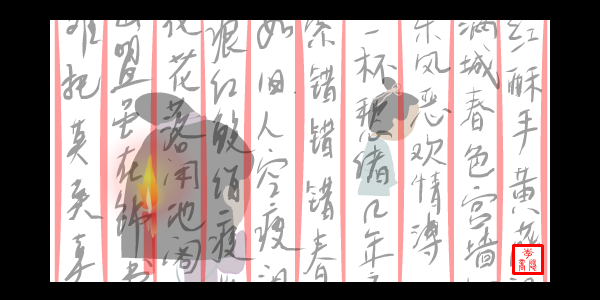 红酥手黄
满城春色宫墙
东风恶欢情薄
一杯愁绪几年
索错错错春
如旧人空瘦泪
痕红鲛绡
花落闲池阁
山盟虽在锦书
难托莫莫莫